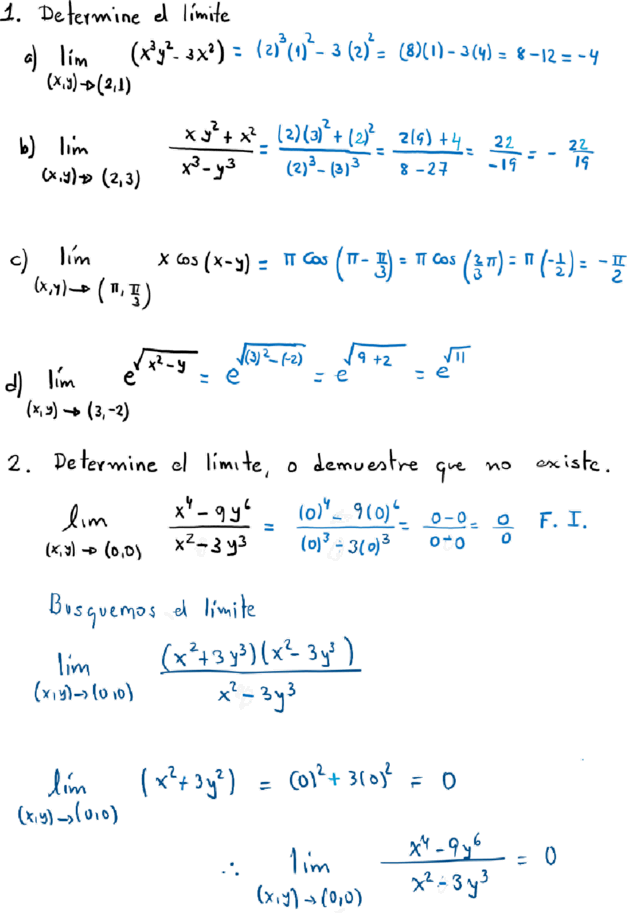 1. Determine el límite
a) lím (x,y)→(2,1) (x³y² - 3x²) = (2)³(1)² - 3(2)² = (8)(1) - 3(4) = 8 - 12 = -4
b) lím (x,y)→(2,3) (xy² + x²)/(x³ - y³) = ((2)(3)² + (2)²)/((2)³ - (3)³) = (2(9) + 4)/(8 - 27) = 22/-19 = - 22/19
c) lím (x,y)→(π, π/3) x cos(x-y) = π cos(π - π/3) = π cos(2/3 π) = π(-1/2) = -π/2
d) lím (x,y)→(3,-2) e^√(x² - y) = e^√((3)² - (-2)) = e^√(9 + 2) = e^√11
2. Determine el límite, o demuestre que no existe.
lím (x,y)→(0,0) (x⁴ - 9y⁶)/(x² - 3y³) = ((0)⁴ - 9(0)⁶)/((0)³ - 3(0)³) = (0-0)/(0-0) = 0/0 F. I.
Busquemos el límite
lím (x,y)→(0,0) ((x² + 3y³)(x² - 3y³))/(x² - 3y³)
lím (x,y)→(0,0) (x² + 3y²) = (0)² + 3(0)² = 0
∴ lím (x,y)→(0,0) (x⁴ - 9y⁶)/(x² - 3y³) = 0